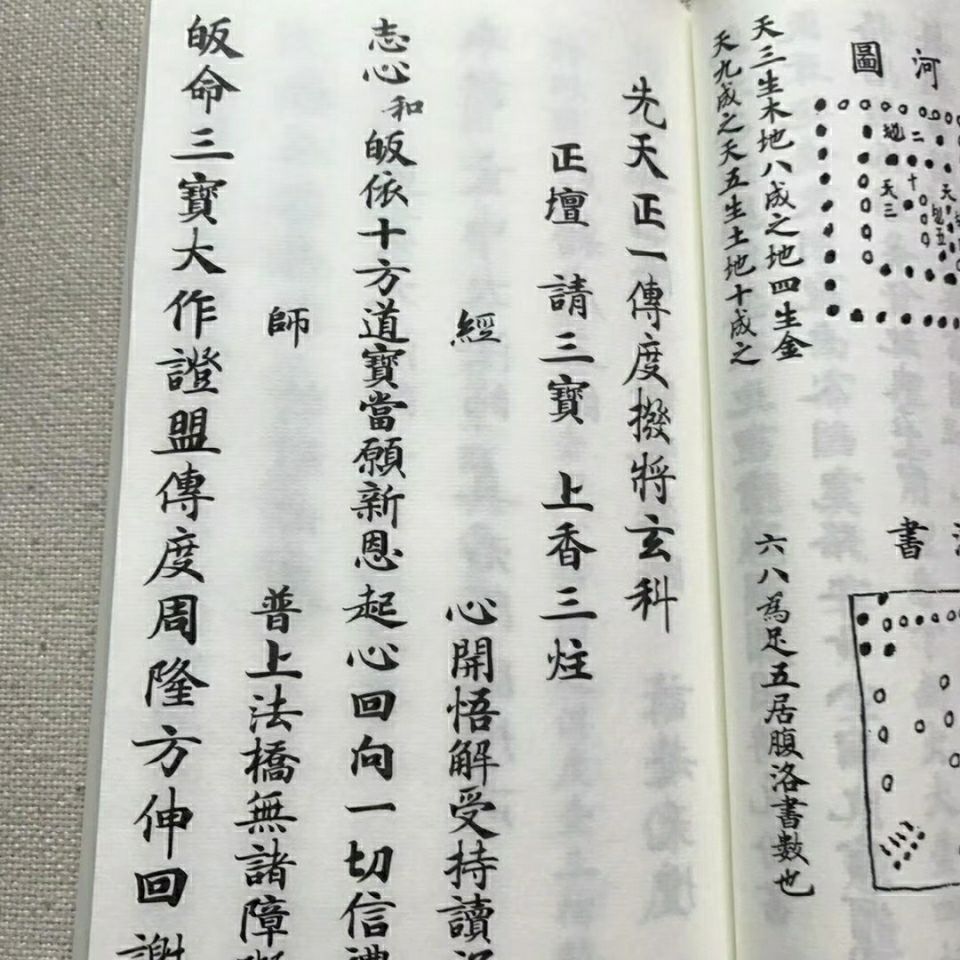 河圖
地二
天三
十
天
天三生木地八成之地四生金
天九成之天五生土地十成之
書
六八為足五居腹洛書數也
先天正一傳度撥將玄科
正壇 請三寶 上香三炷
經 心開悟解受持讀
志心 和 皈依十方道寶當願新恩起心回向一切信禮
師 普上法橋無諸障
皈命三寶大作證盟傳度周隆方伸回謝